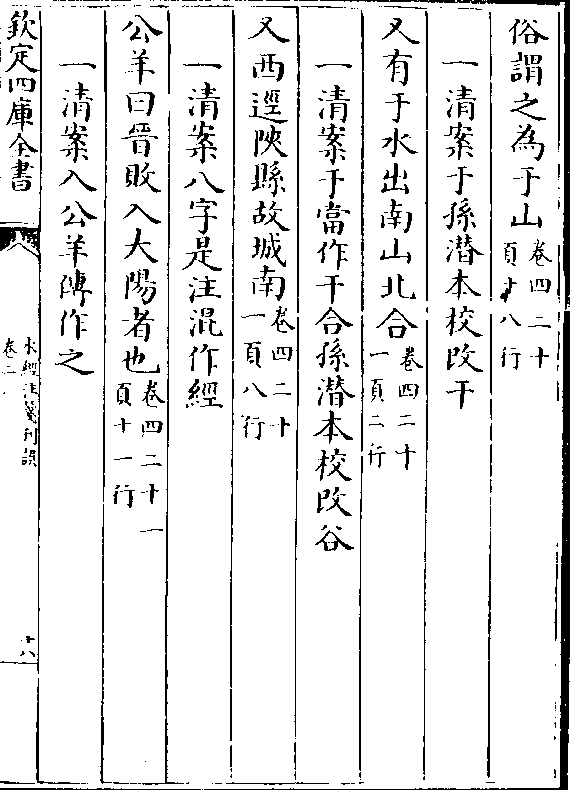 俗謂之為于山卷四二十頁十八行
一清案于孫潛本校改干
又有于水出南山北合卷四二十一頁二行
一清案于當作干合孫潛本校改谷
又西逕陜縣故城南卷四二十一頁八行
一清案八字是注混作經
公羊曰晉敗入大陽者也卷四二十一頁十一行
一清案入公羊傳作之
欽定四庫全書
水經注箋刊誤
卷二
十八